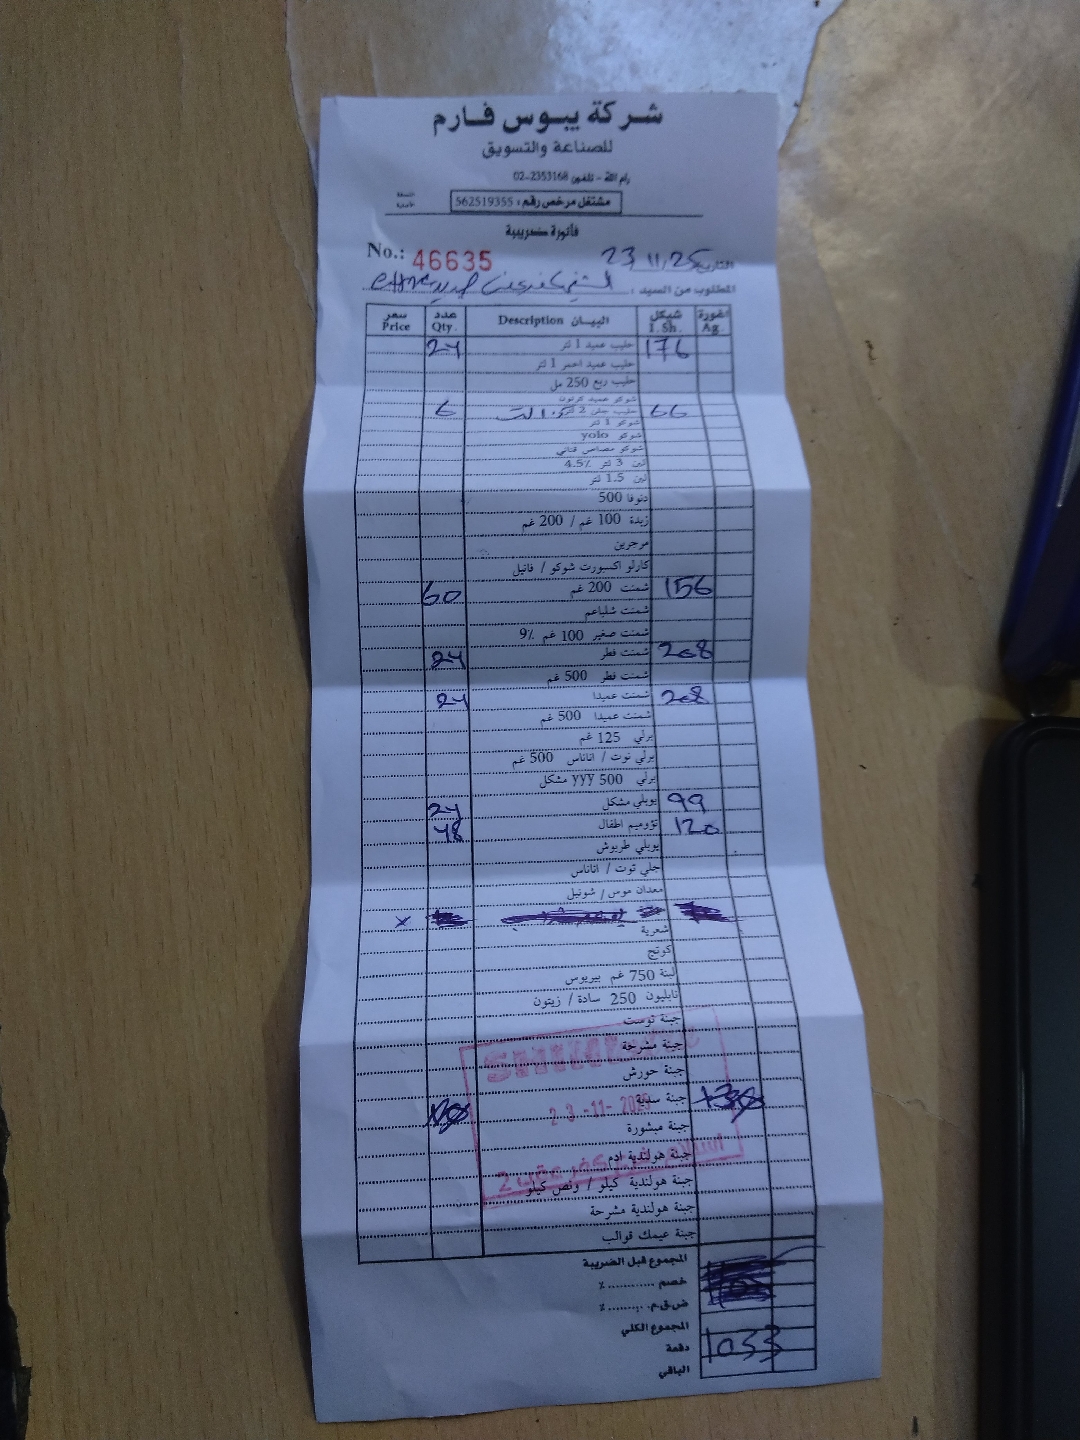 شركة يبوس فارم
للصناعة والتسويق
رام الله - تلفون 02-2353168
مشتغل مرخص رقم: 562519355
النسخة الأصلية
فاتورة ضريبية
No.: 46635
التاريخ 23/11/25
المطلوب من السيد:
سعر Price عدد Qty. البيـــان Description شيكل I. Sh. اغورة Ag.
24 حليب عميد 1 لتر 176
حليب عميد احمر 1 لتر
حليب ربع 250 مل
شوكو عميد كرتون
6 حليب جلي 2 لتر 66
شوكو 1 لتر
شوكو yolo
شوكو مصاص قناني
لبن 3 لتر 4.5٪
لبن 1.5 لتر
دنوفا 500
زبدة 100 غم / 200 غم
مرجرين
كارلو اكسبورت شوكو / فانيل
60 شمنت 200 غم 156
شمنت شلباعم
شمنت صغير 100 غم 9٪
24 شمنت فطر 208
شمنت فطر 500 غم
24 شمنت عميدا 208
شمنت عميدا 500 غم
برلي 125 غم
برلي توت / اناناس 500 غم
برلي 500 yyy مشكل
24 يوبلي مشكل 99
48 تؤوميم اطفال 120
يوبلي طربوش
جلي توت / اناناس
معدان موس / شونيل
x
شعرية
كرتج
لبنة 750 غم بيريوس
نابليون 250 سادة / زيتون
جبنة توست
جبنة مشرحة
جبنة حورش
جبنة سدية
23-11-
جبنة مبشورة
جبنة هولندية ادم
جبنة هولندية كيلو / ونص كيلو
جبنة هولندية مشرحة
جبنة عيمك قوالب
المجموع قبل الضريبة
خصم ............ ٪
ض.ق.م. ......... ٪
المجموع الكلي
دفعة 1033
الباقي